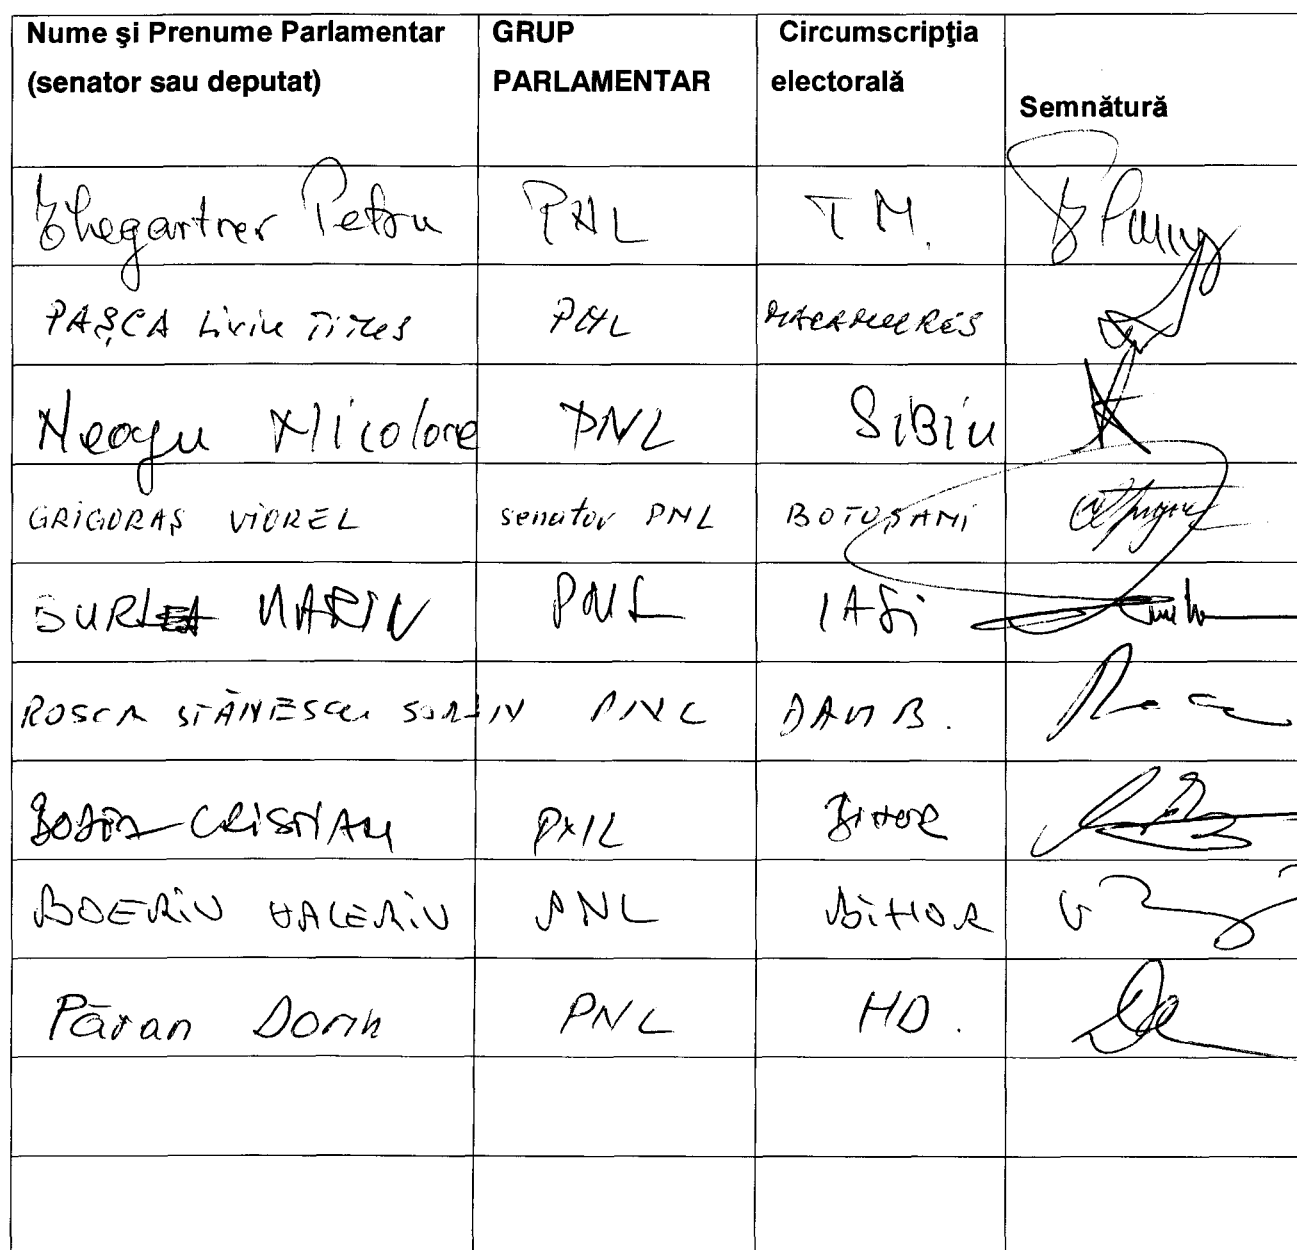 Nume şi Prenume Parlamentar (senator sau deputat) GRUP PARLAMENTAR Circumscripţia electorală Semnătură
Ehegartner Petru PNL TM.
PAŞCA Liviu TITUS PNL MARAMUREŞ
Neagu Nicolae PNL SIBIU
GRIGORAŞ VIOREL senator PNL BOTOŞANI
BURLEA MARIN PNL IAŞi
ROSCA STĂNESCU SORIN PNL DAMB.
BODEA CRISTIAN PNL BIHOR
BOERIU VALERIU PNL BIHOR
Păran Dorin PNL HD.